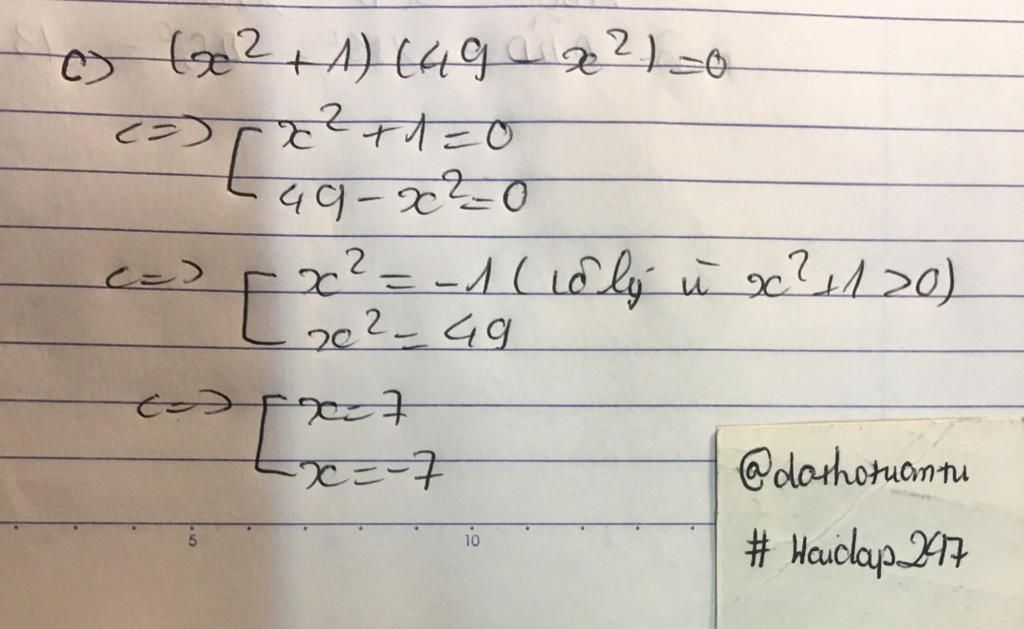 c) (x² + 1) (49 - x²) = 0
<=> [ x² + 1 = 0
49 - x² = 0
<=> [ x² = -1 ( vô lý vì x² + 1 > 0)
x² = 49
<=> [ x = 7
x = -7
@dathotuantu
# Hoidap247
5 10